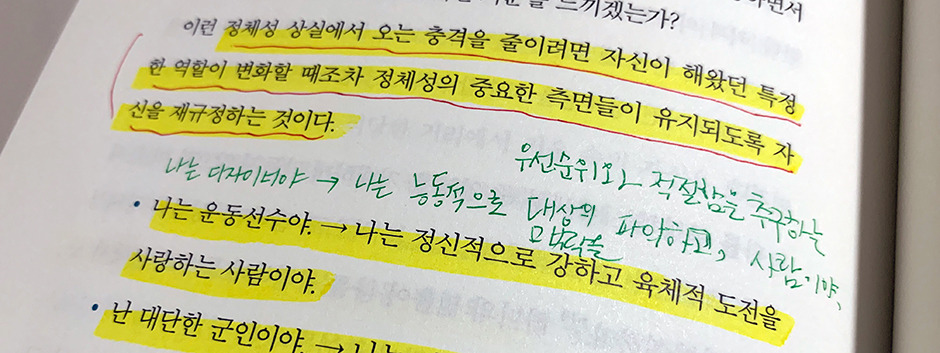 느끼겠는가?
이런 정체성 상실에서 오는 충격을 줄이려면 자신이 해왔던 특정
한 역할이 변화할 때조차 정체성의 중요한 측면들이 유지되도록 자
신을 재규정하는 것이다.
우선순위와 적절함을 추구하는
나는 디자이너야 → 나는 능동적으로 대상의 맥락을 파악하고, 사람이야.
• 나는 운동선수야. → 나는 정신적으로 강하고 육체적 도전을
사랑하는 사람이야.
• 난 대단한 군인이야. →